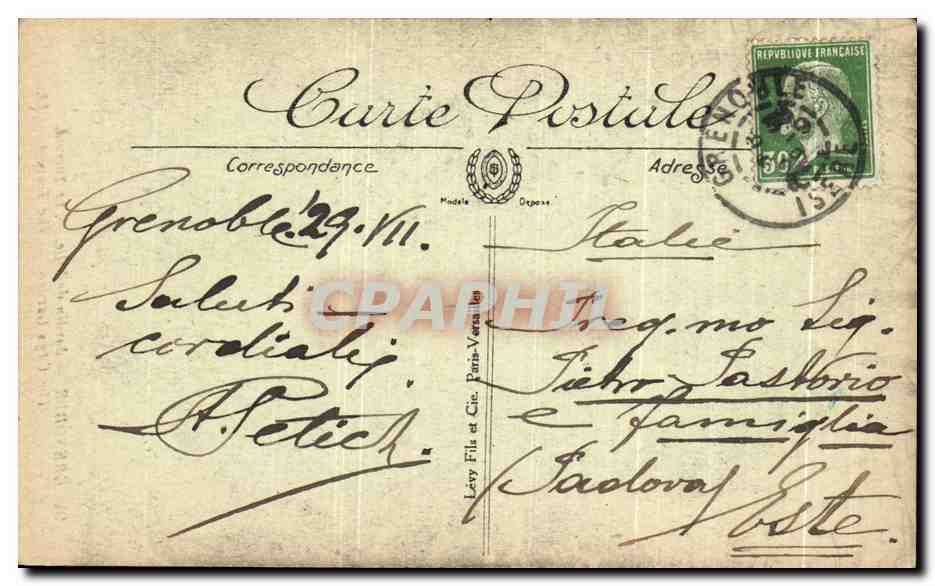 REPVBLIQVE FRANÇAISE
GRENOBLE
ISERE
Carte Postale
Correspondance
Adresse
Modèle Déposé
Grenoble, 29.VII.
Saluti
cordiali
A. Petich.
Lévy Fils et Cie, Paris-Versailles
Italie
Preg.mo Sig.
Pietro Pastorio
e famiglia
(Padova) Este.
CPAPHIL